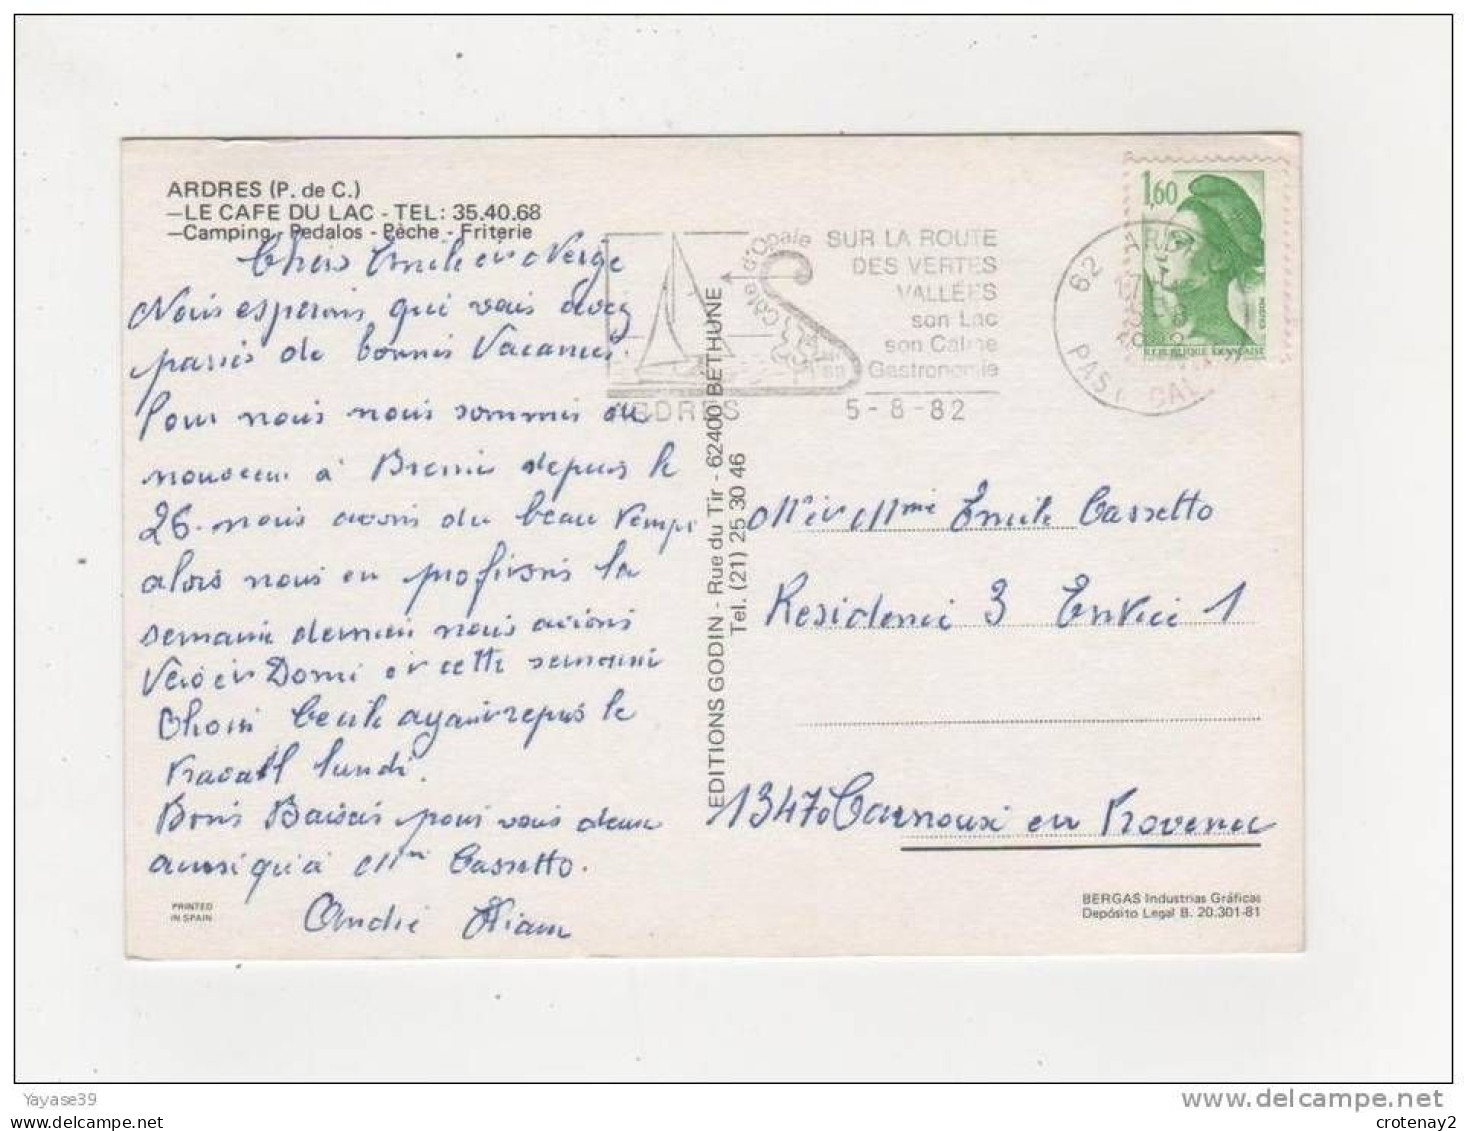 ARDRES (P. de C.)
—LE CAFE DU LAC - TEL: 35.40.68
—Camping - Pedalos - Pèche - Friterie
Chers Emile et
Nous esperons que vous avez
passés de bonnes Vacances.
Pour nous nous sommes de
nouveau à depuis le
26. nous avons du beau temps
alors nous en profitons la
semaine derniere nous avions
et cette semaine
ayant repris le
travail lundi.
Bons Baisers pour vous deux
ainsi qu'à Mme Cassetto.
André
PRINTED
IN SPAIN
EDITIONS GODIN - Rue du Tir - 62400 BETHUNE
Tel. (21) 25 30 46
Côte d'Opale
ARDRES
SUR LA ROUTE
DES VERTES
VALLÉES
son Lac
son Calme
Gastronomie
5-8-82
62 ARDRES
PAS DE CALAIS
1,60
REPUBLIQUE FRANÇAISE
Mr et Mme Emile Cassetto
Residence 3 Entrée 1
13470 Carnoux en Provence
BERGAS Industrias Gráficas
Depósito Legal B. 20.301-81
Yayase39
www.delcampe.net
crotenay2